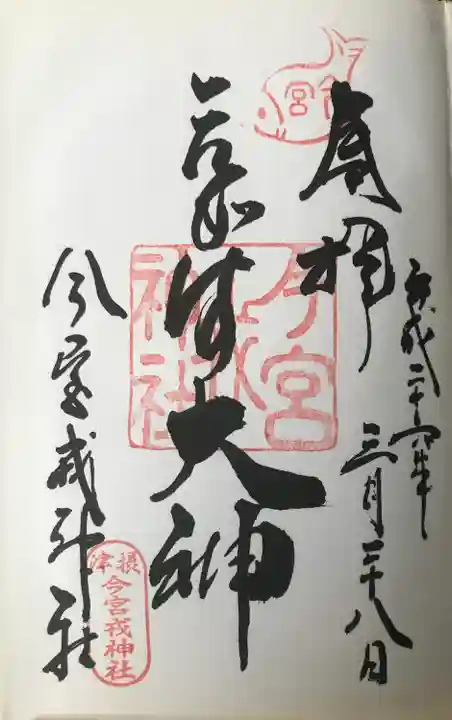 奉拝
平成二十六年
三月二十八日
大神
今宮戎神社
今宮
今宮戎神社
摂津
今宮戎神社